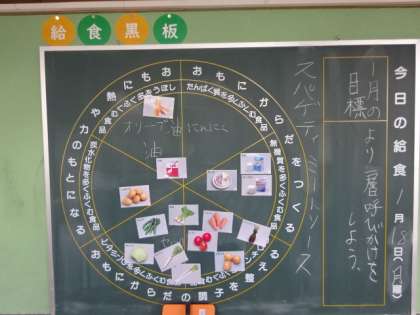 給食黒板
今日の給食 1月18日(月曜)
1月の目標
より一層呼びかけを
しよう。
スパゲティミートソース
おもにからだをつくる
たんぱく質を多くふくむ食品
無機質を多くふくむ食品
おもにからだの調子を整える
ビタミンを多くふくむ食品
おもに熱や力のもとになる
炭水化物を多くふくむ食品
しぼうを多くふくむ食品
オリーブ油 にんにく
油